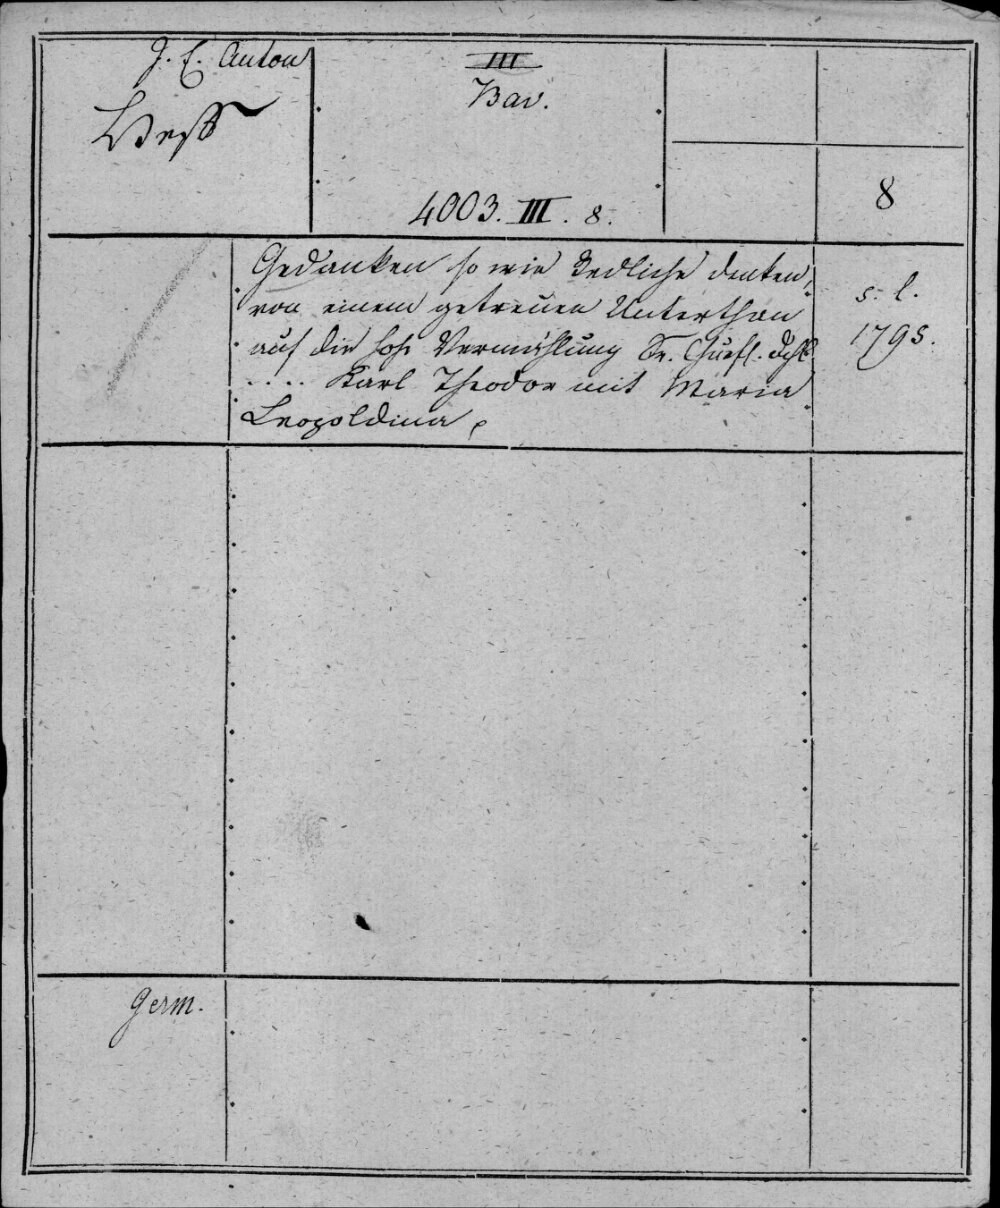 J. C. Anton
III
Bav.
8
4003. III. 8.
Gedanken so wie Redliche denken,
von einem getreuen Unterthan
auf die hohe Vermählung Sr. Churfl. Dchl
.... Karl Theodor mit Maria
Leopoldina
s. l.
1795.
Germ.